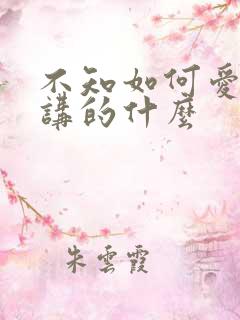 不知如何愛
講的什麼
朱雲霞